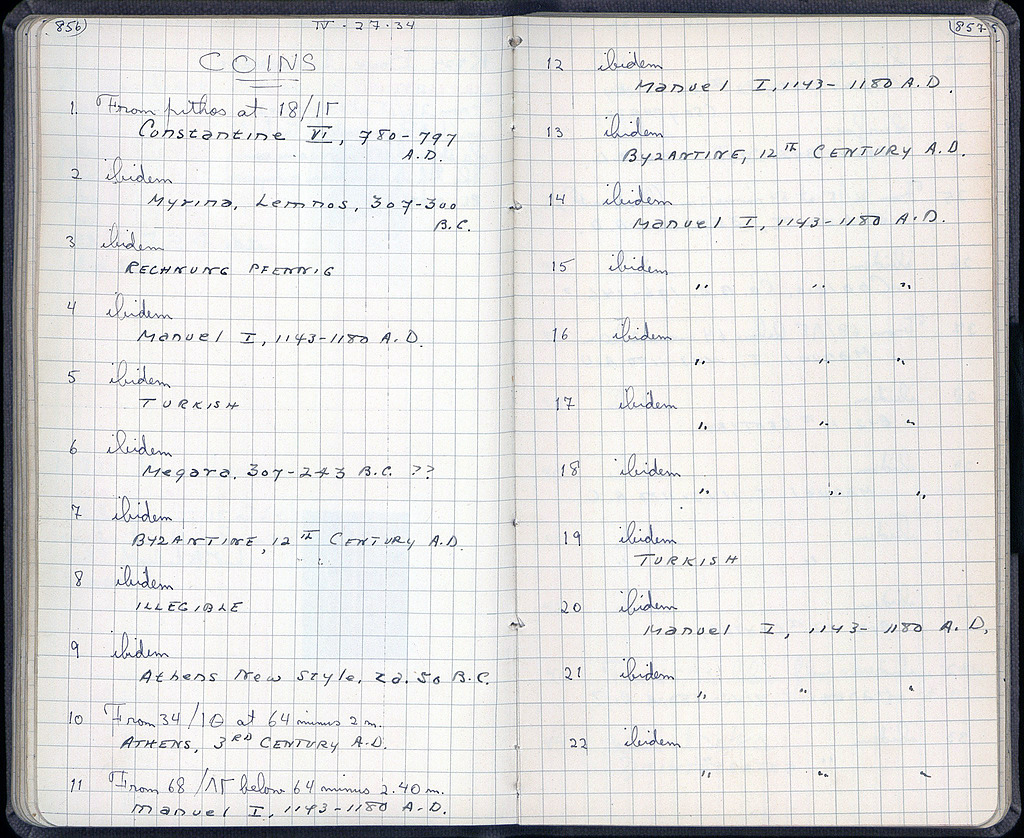 856
IV - 27-34
COINS
1. From pithos at 18/ΙΓ
Constantine VI, 780-797
A.D.
2 ibidem
Myrina, Lemnos, 307-300
B.C.
3 ibidem
RECHNUNG PFENNIG
4 ibidem
Manuel I, 1143-1180 A.D.
5 ibidem
TURKISH
6 ibidem
Megara, 307-243 B.C. ??
7 ibidem
BYZANTINE, 12TH CENTURY A.D.
8 ibidem
ILLEGIBLE
9 ibidem
Athens New Style, ca. 50 B.C.
10 From 34/ΙΘ at 64 minus 2 m.
ATHENS, 3RD CENTURY A.D.
11 From 68/ΛΓ below 64 minus 2.40 m.
Manuel I, 1143-1180 A.D.
857
12 ibidem
Manuel I, 1143-1180 A.D.
13 ibidem
BYZANTINE, 12TH CENTURY A.D.
14 ibidem
Manuel I, 1143-1180 A.D.
15 ibidem
" " "
16 ibidem
" " "
17 ibidem
" " "
18 ibidem
" " "
19 ibidem
TURKISH
20 ibidem
Manuel I, 1143-1180 A.D.
21 ibidem
" " "
22 ibidem
" " "